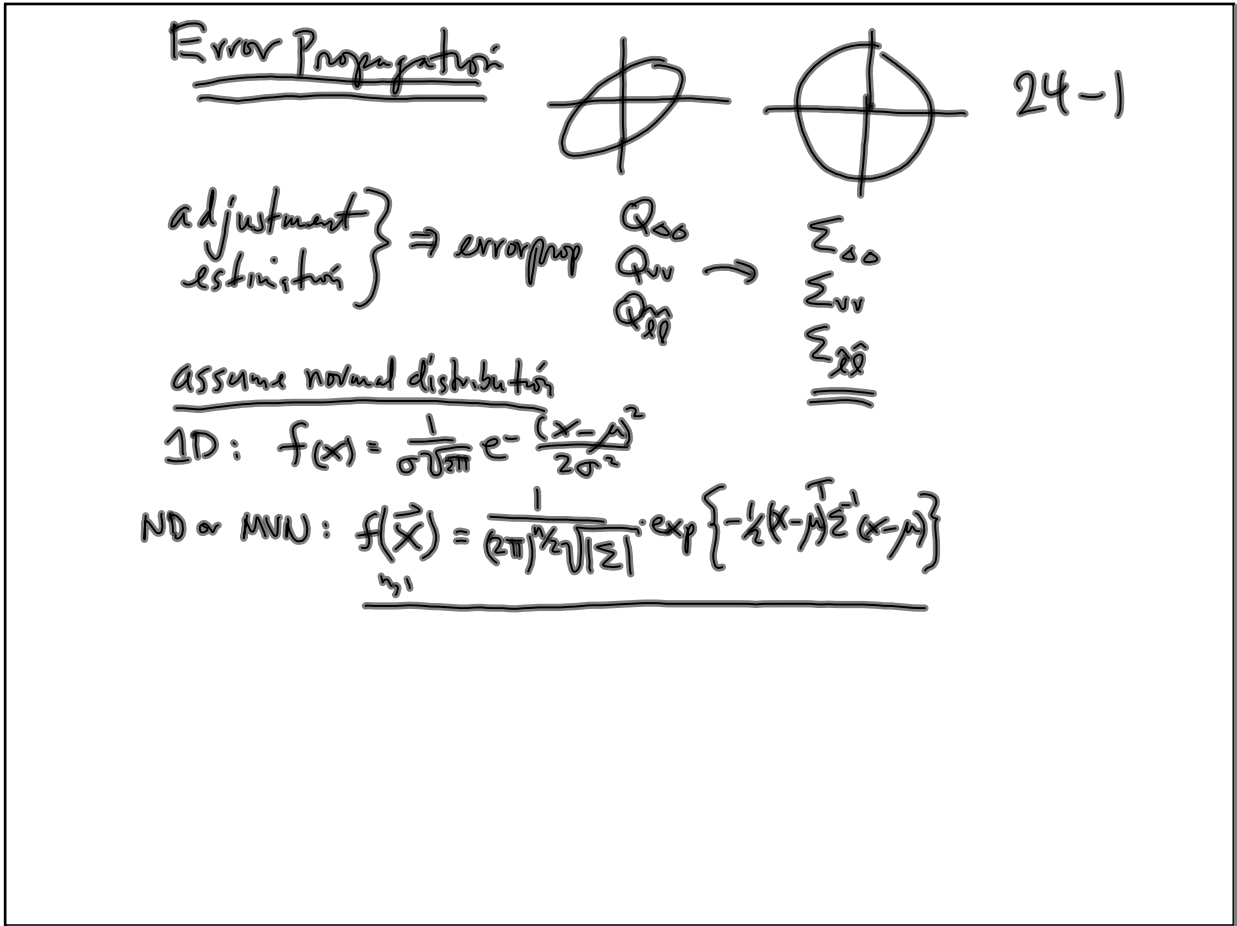 Error Propagation
24-1
adjustment
estimation } ⇒ error prop
Q_ΔΔ
Q_vv →
Q_l̂l̂
Σ_ΔΔ
Σ_vv
Σ_l̂l̂
assume normal distribution
1D: f(x) = 1/(σ√2π) e^-(x-μ)²/2σ²
ND or MVN: f(x⃗) = 1/((2π)^n/2 √|Σ|) · exp{-½(x-μ)^T Σ^-1 (x-μ)}
n,1